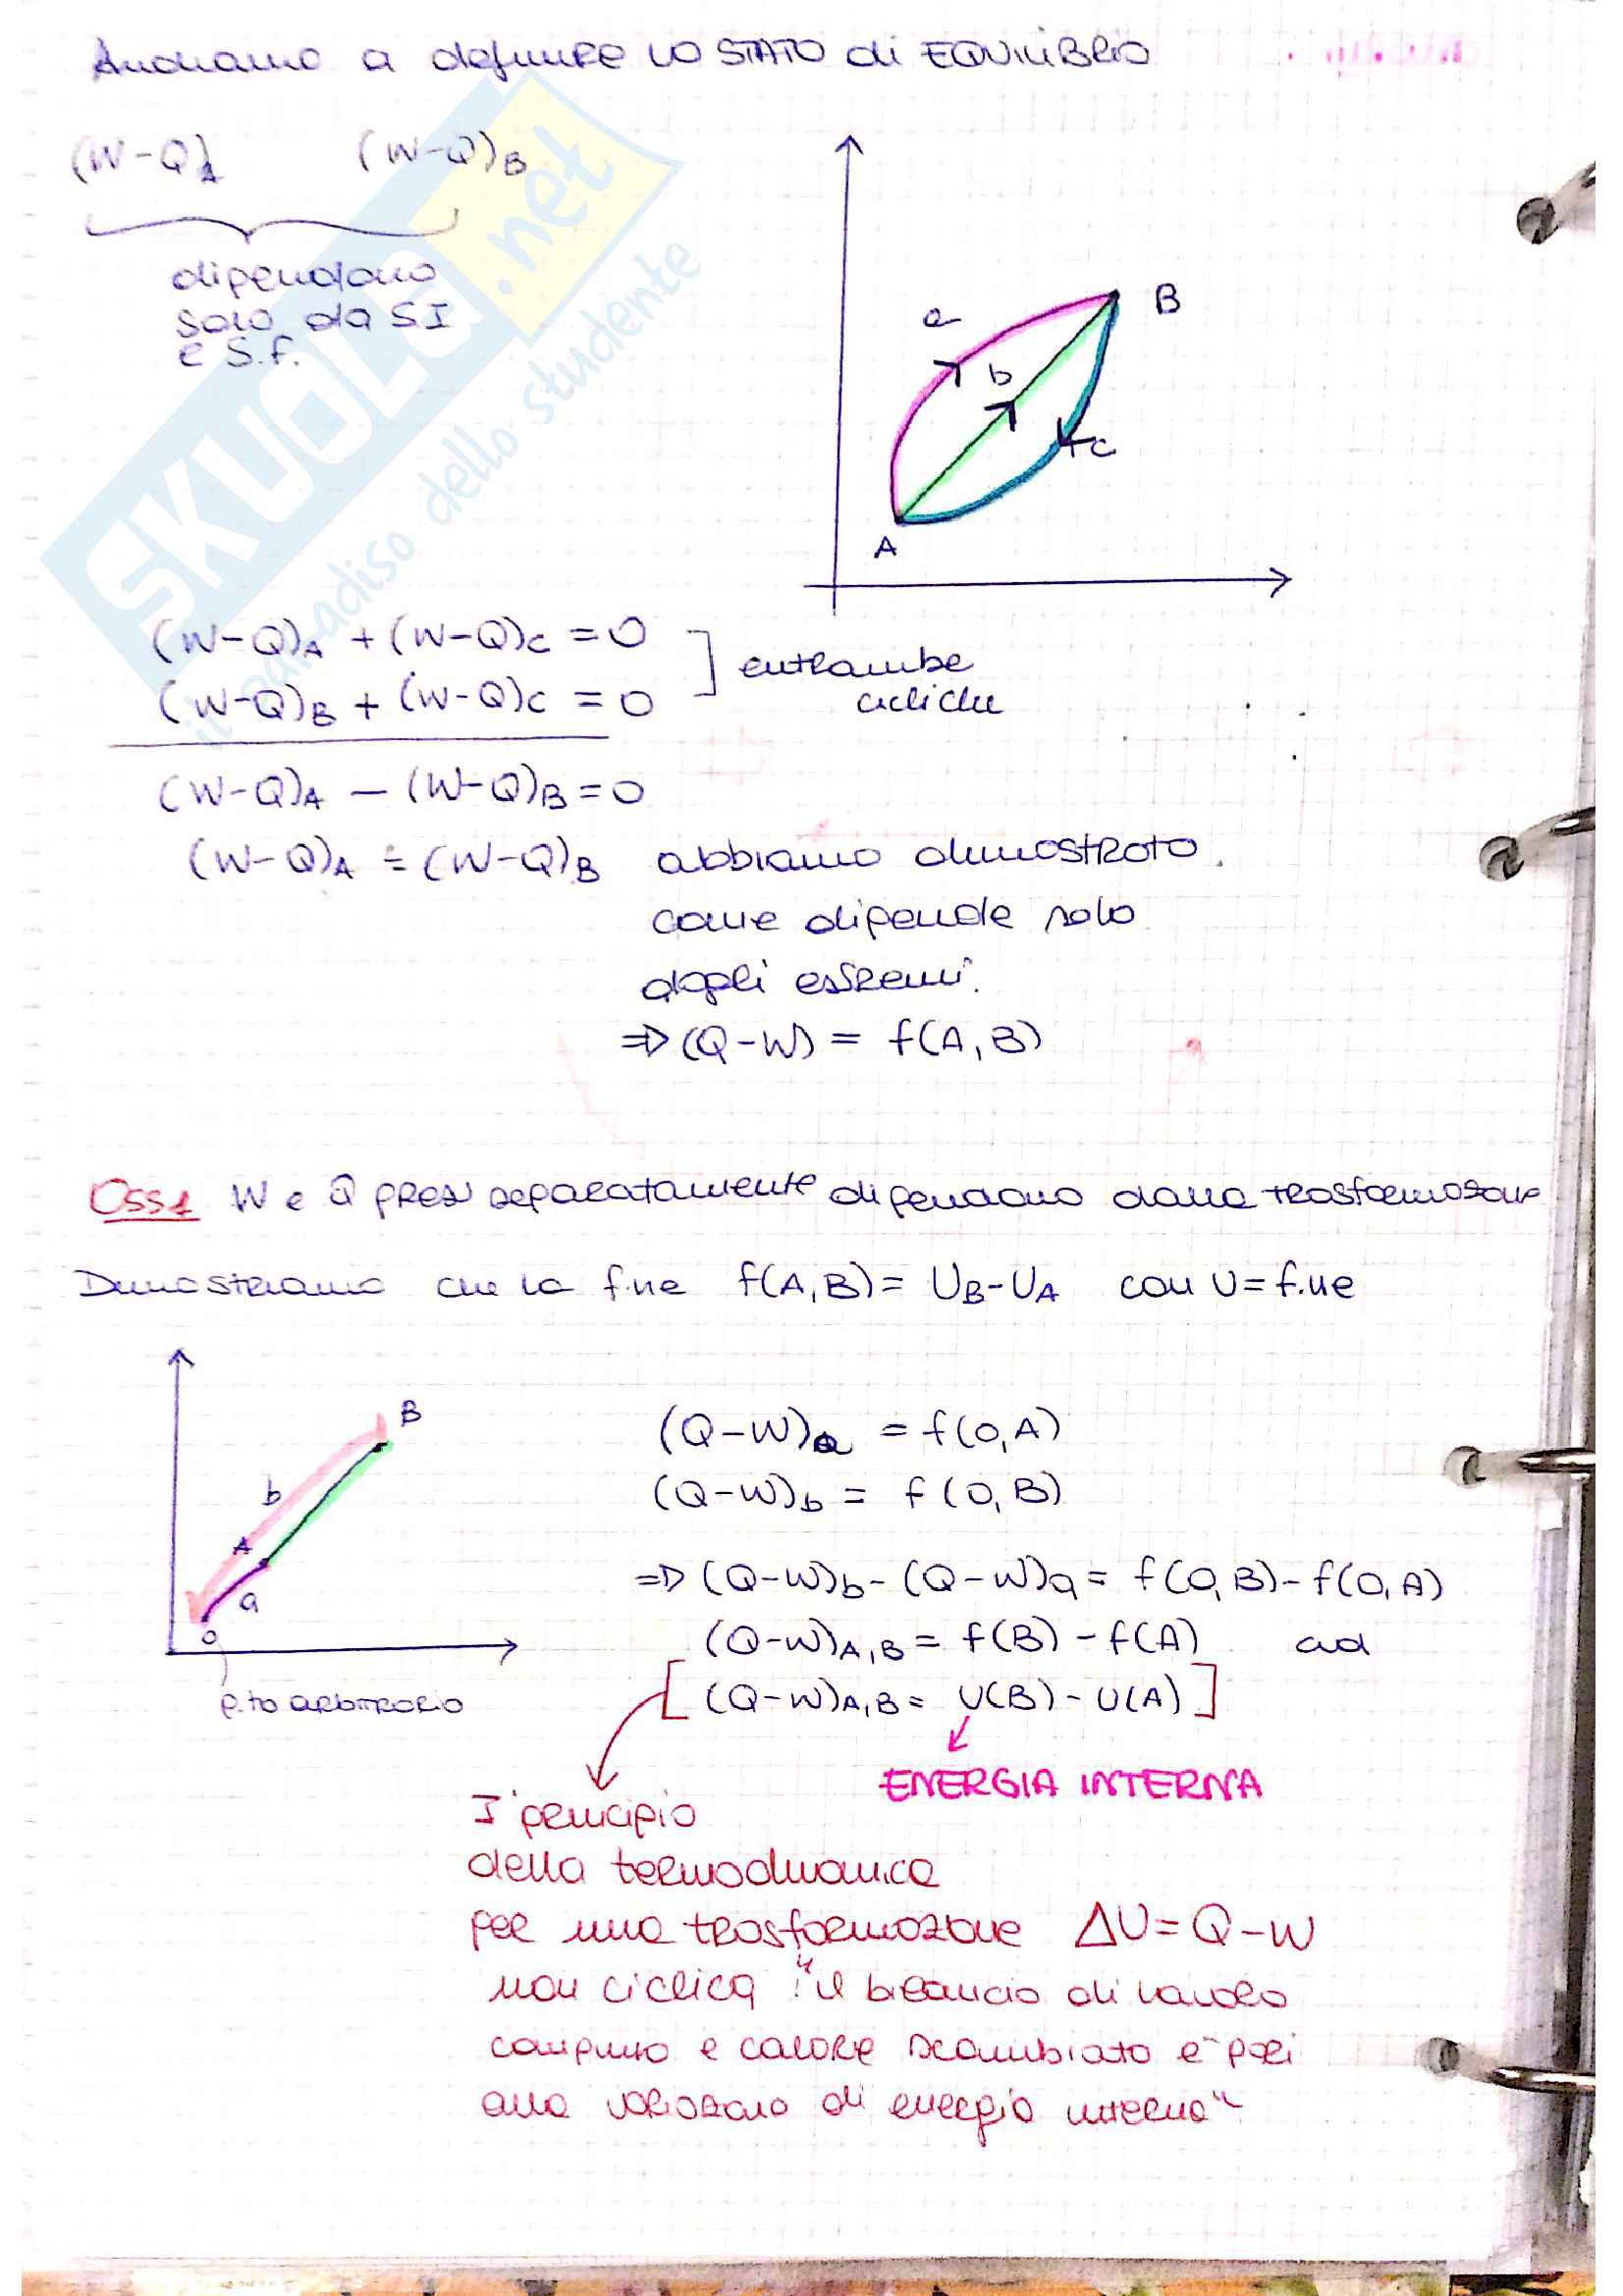 Andiamo a definire lo STATO di EQUILIBRIO
(W-Q)A (W-Q)B
dipendono
solo da SI
e S.f.
B
a
b
c
A
(W-Q)A + (W-Q)C = 0
(W-Q)B + (W-Q)C = 0
entrambe
cicliche
(W-Q)A - (W-Q)B = 0
(W-Q)A = (W-Q)B abbiamo dimostrato
come dipende solo
dagli estremi.
=> (Q-W) = f(A, B)
Oss1 W e Q presi separatamente dipendono dalla trasformazione
Dimostriamo che la f.ne f(A, B) = UB-UA con U = f.ne
B
b
A
a
O
p.to arbitrario
(Q-W)a = f(0, A)
(Q-W)b = f(0, B)
=> (Q-W)b - (Q-W)a = f(0, B) - f(0, A)
(Q-W)A,B = f(B) - f(A)
[(Q-W)A,B = U(B) - U(A)]
ENERGIA INTERNA
I° principio
della termodinamica
per una trasformazione ΔU = Q - W
non ciclica : "il bilancio di lavoro
compiuto e calore scambiato è pari
alla variazione di energia interna"
SKUOLA.net
il paradiso dello studente